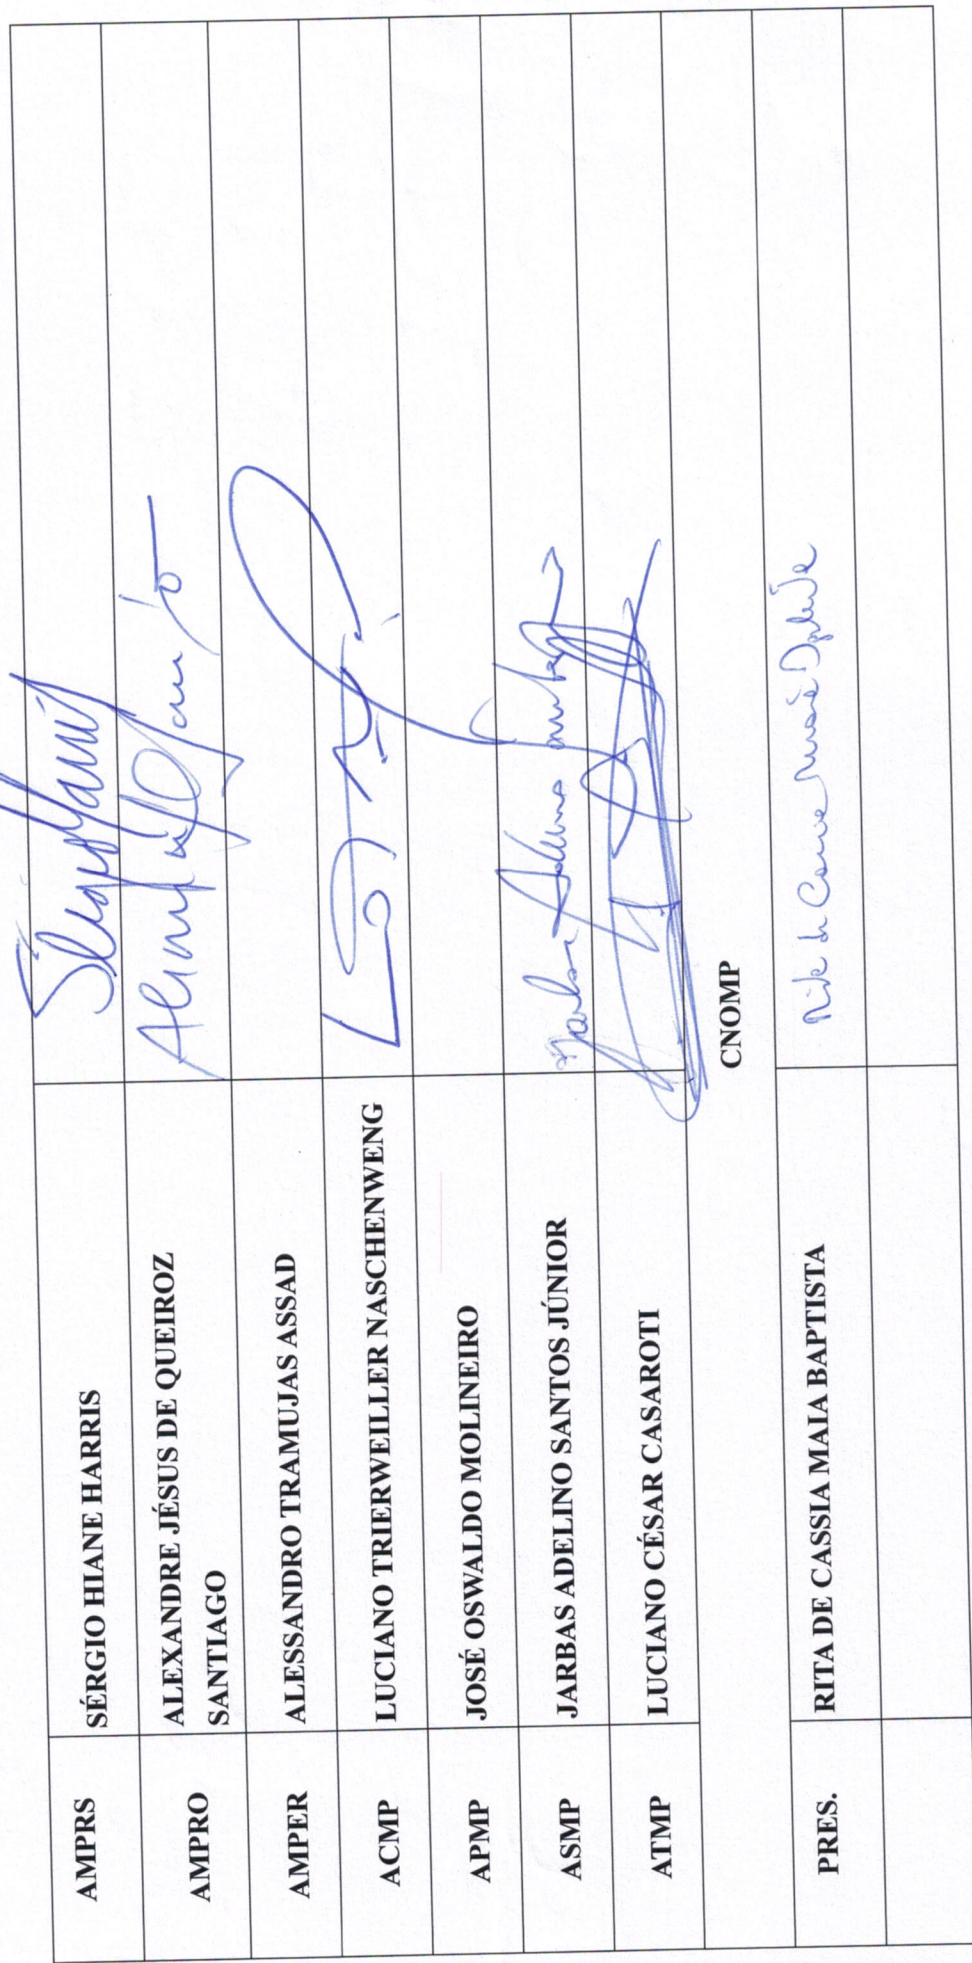 AMPRS SÉRGIO HIANE HARRIS
AMPRO ALEXANDRE JÉSUS DE QUEIROZ
SANTIAGO
AMPER ALESSANDRO TRAMUJAS ASSAD
ACMP LUCIANO TRIERWEILLER NASCHENWENG
APMP JOSÉ OSWALDO MOLINEIRO
ASMP JARBAS ADELINO SANTOS JÚNIOR
ATMP LUCIANO CÉSAR CASAROTI
CNOMP
PRES. RITA DE CASSIA MAIA BAPTISTA